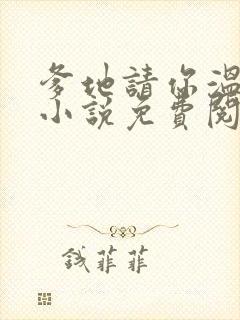 爹地請你溫
小說免費閱
錢菲菲